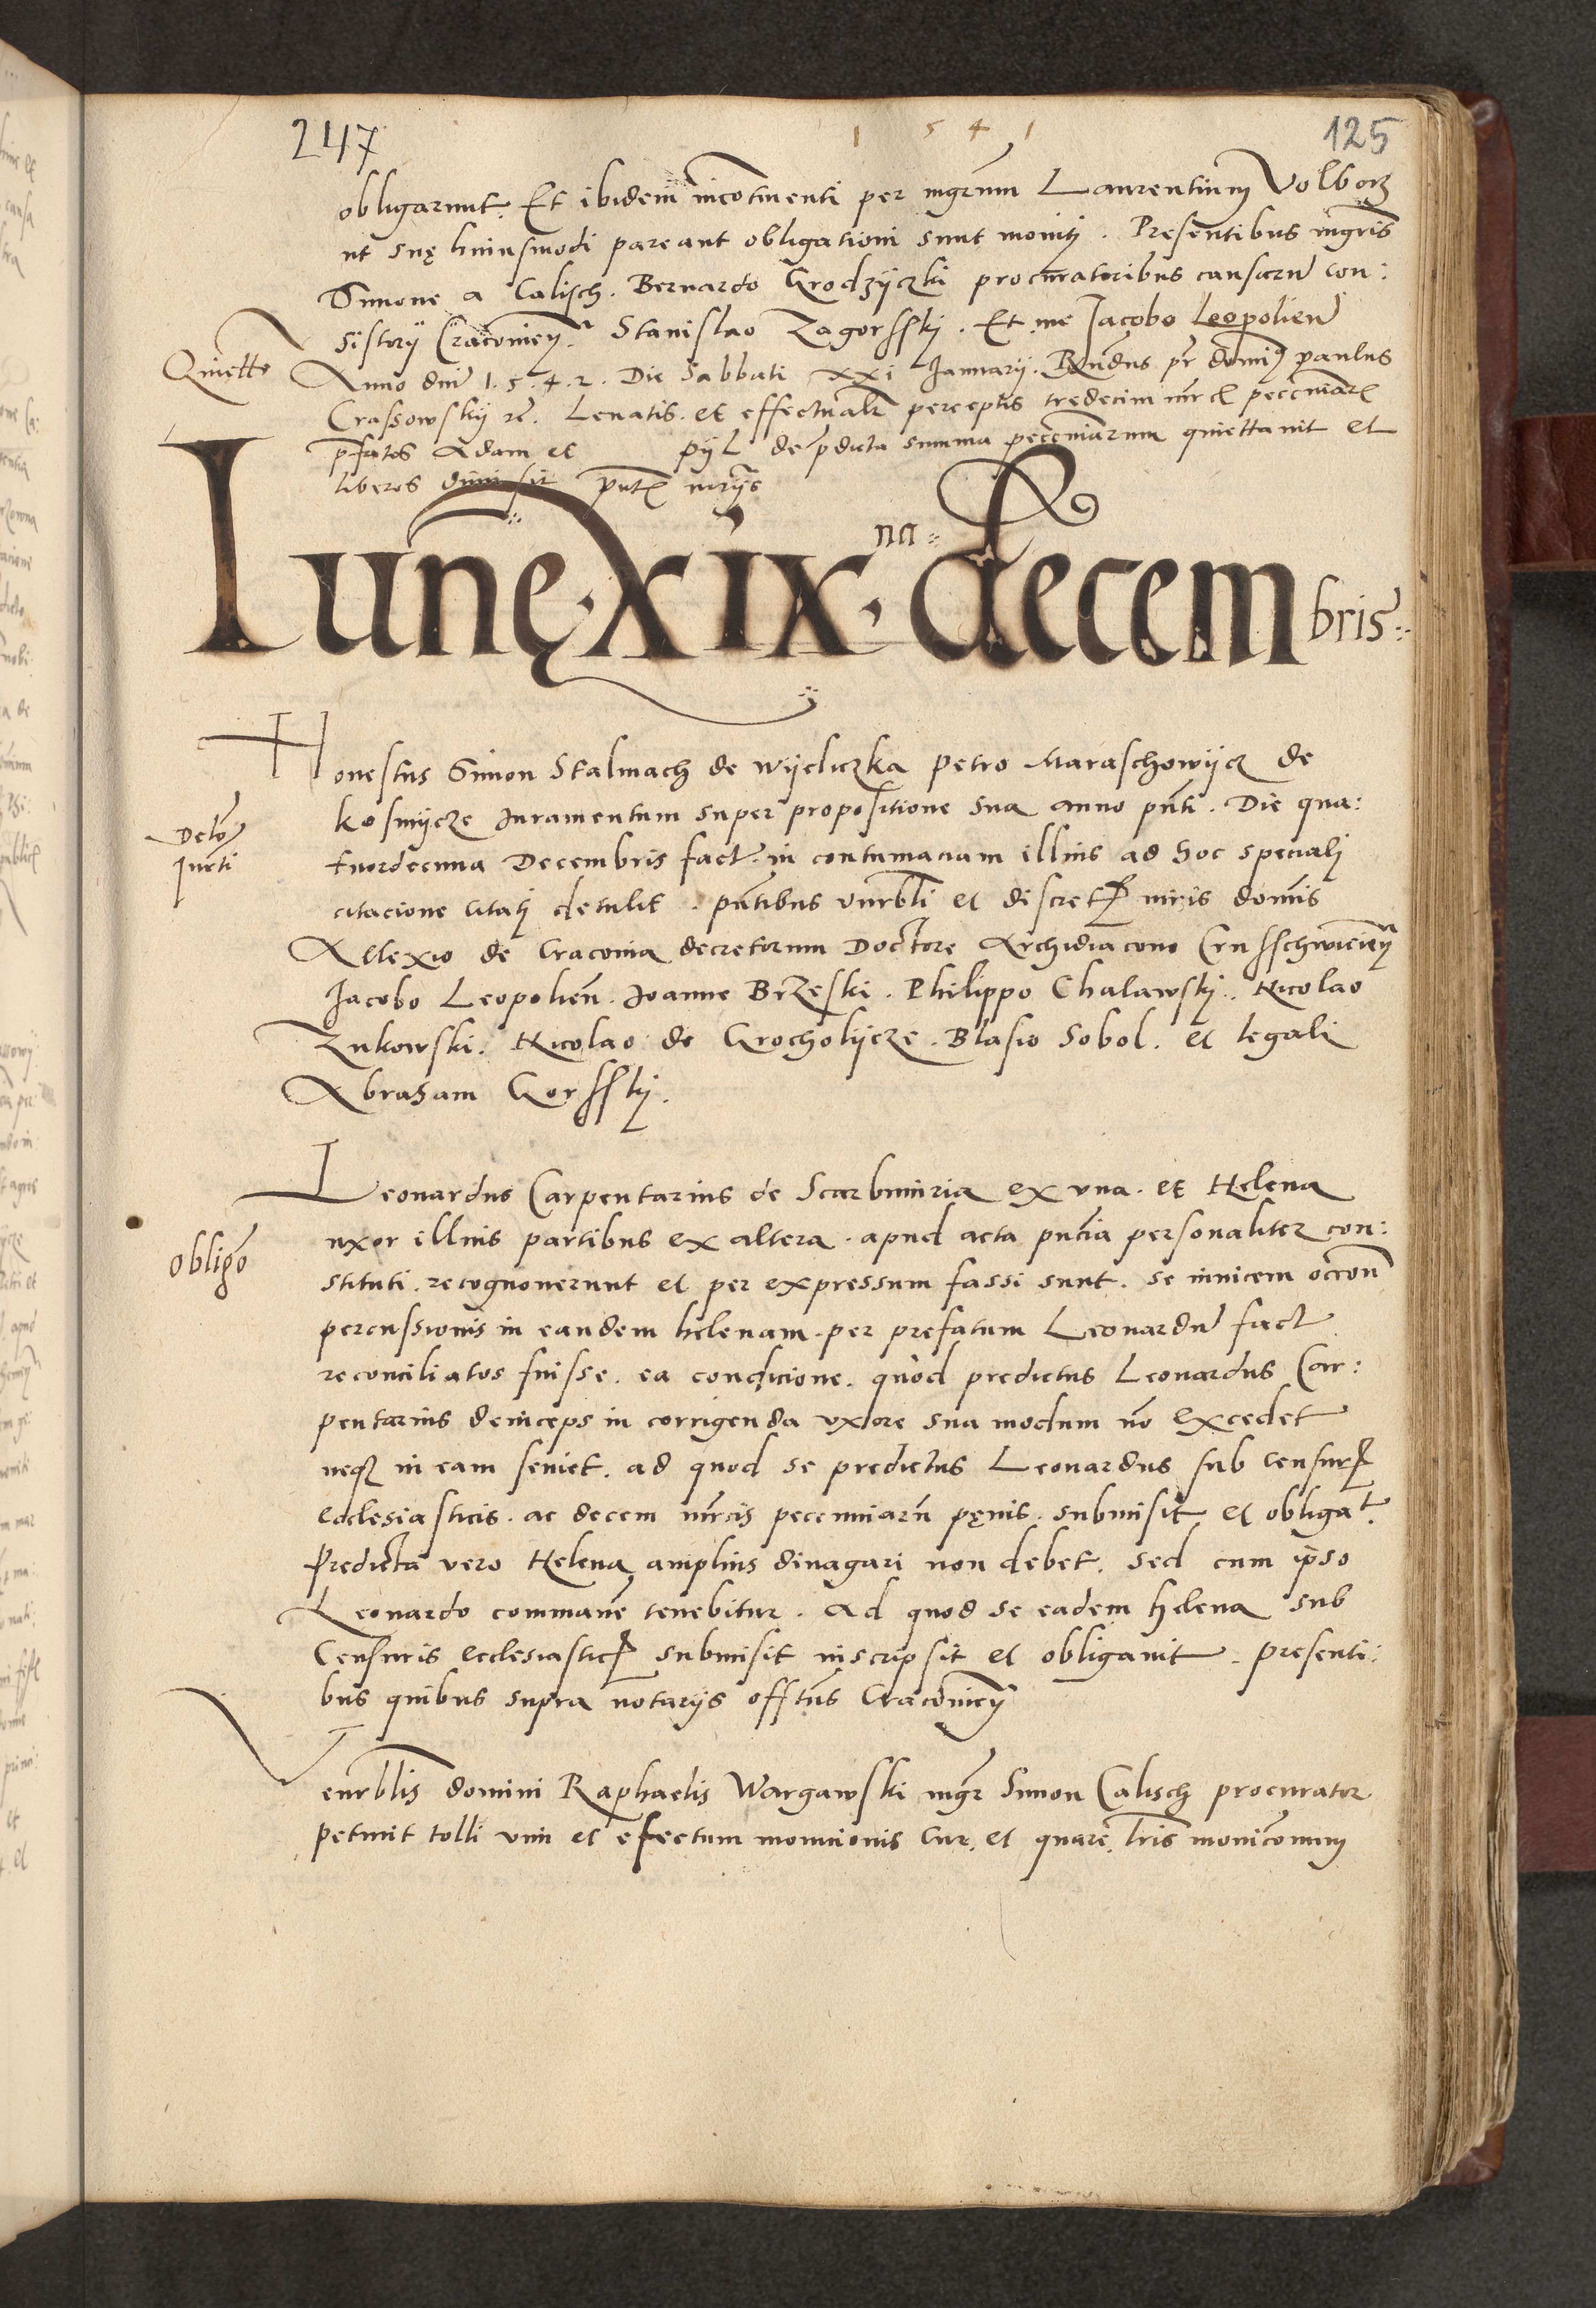 247
1 5 4 1
125
obligarunt. Et ibidem incontinenti per mgrum Laurentium Volborz
ut suę huiusmodi pareant obligationi sunt moniti. Presentibus mgris
Simone a Calisch. Bernardo Grodzyczki procuratoribus causarum con:
sistorij Cracouien. Stanislao Zagorssky. Et me Jacobo Leopolien
Quietto
Anno dni 1.5.4.2. Die Sabbati xxi January. Rndus pr domin paulus
Crassowsky re. Leuatis. et effectualr perceptis tredecim mrc pecuniar
pfatos Adam et pyl de pdicta summa pecuniarum quiettauit et
liberos dimisit pnt
Lunę. xix na. decem
bris
Honestus Simon Stalmach de wyeliczka petro Maraschowycz de
kosmycze Juramentum super propositione sua anno pnti. Die qua:
Delo
Jurti
tuordecima Decembris fact. in contumaciam illius ad hoc speciali
citacione citati detulit. pntibus vnrbli et discret viris domis
Allexio de Cracouia decretorum Doctore Archidiacono Crusschwicien
Jacobo Leopolien. Joanne Brzeski. Philippo Chalawsky. Nicolao
Zukowski. Nicolao de Grocholycze. Blasio Sobol. et legali
Abraham Gorssky.
Leonardus Carpentarius de Scarbimiria ex vna. et Helena
obligo
uxor illius partibus ex altera. apud acta pncia personaliter con:
stituti. recognouerunt et per expressum fassi sunt. se inuicem occon
percussionis in eandem helenam. per prefatum Leonardu fact
reconciliatos fuisse. ea condicione. quod predictus Leonardus Car:
pentarius deinceps in corrigenda vxore sua modum no excedet
neq in eam seuiet. ad quod se predictus Leonardus sub censur
ecclesiasticis. ac decem mrcis pecuniarn pęnis. submisit et obligat.
Predicta vero Helena amplius diuagari non debet. sed cum ipso
Leonardo commane tenebitur. Ad quod se eadem helena sub
Censuris ecclesiastic submisit inscripsit et obligauit. presenti:
bus quibus supra notarijs offtus Cracouien
Venrblis domini Raphaelis Wargawski mgr Simon Calisch procurator
petiuit tolli vim et efectum monicionis cur. et quare. lris monicionum